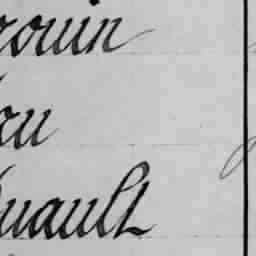 rouin
ou
uault